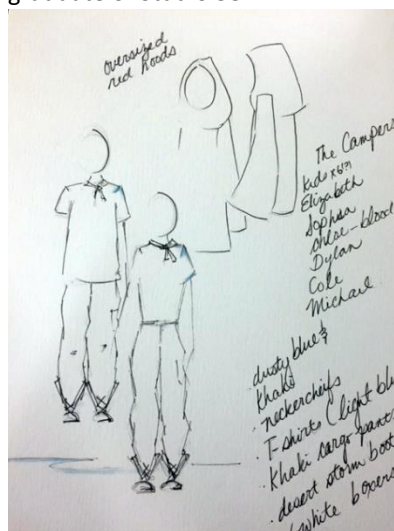 oversized
red hoods
The Campers
Kids x6!?
Elizabeth
Sophia
Chloe - blood
Dylan
Cole
Michael
. dusty blue &
Khaki
. neckercheifs
. T-shirts (light blu
. Khaki cargo pants
. desert storm boot
. white boxers